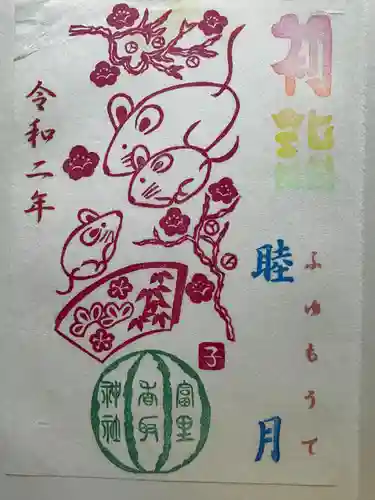 初詣
ふゆもうて
睦月
令和二年
子
富里
香取
神社